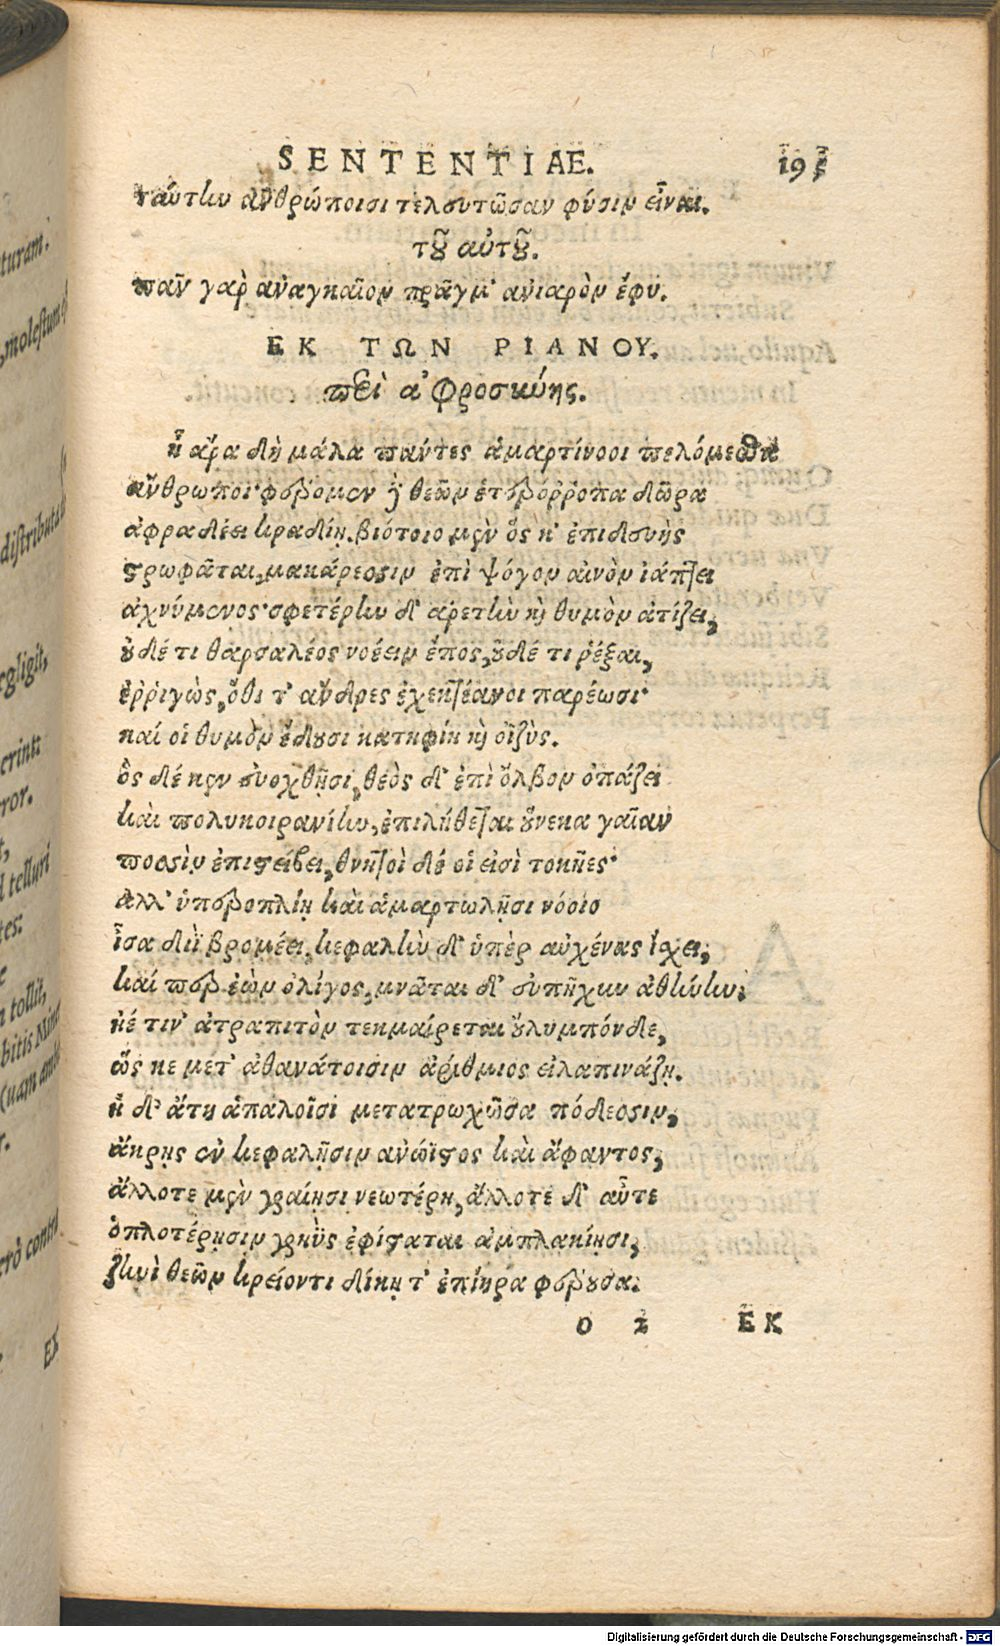 turam.
molestum
distributa
rgligit,
crint:
ror.
d telluri
tes:
n tollit,
bitis
r.
erò contra
EX
SENTENTIAE. 195
ταύτην ἀνθρώποισι τελευτῶσαν φύσιν εἶναι.
τοῦ αὐτοῦ.
πᾶν γαρ ἀναγκαῖον πρᾶγμ' ἀνιαρὸν ἔφυ.
ΕΚ ΤΩΝ ΡΙΑΝΟΥ.
περὶ ἀφροσκύης.
ἦ ἄρα δὴ μάλα πάντες ἁμαρτίνοοι πελόμεσθα
ἄνθρωποι· φέρομεν δὲ θεῶν ἑτερόρροπα δῶρα
ἀφραδέει κραδίῃ. βιότοιο μὲν ὅς κ' ἐπιδευὴς
στρωφᾶται, μακάρεσσιν ἐπὶ ψόγον αἰνὸν ἰάπτει
ἀχνύμενος· σφετέρην δ' ἀρετὴν καὶ θυμὸν ἀτίζει,
οὐδέ τι θαρσαλέος νοέειν ἔπος, οὐδέ τι ῥέξαι,
ἐρριγὼς, ὅθι τ' ἄνδρες ἐχεκτέανοι παρέωσι·
καί οἱ θυμὸν ἔδουσι κατηφίη καὶ οἰζὺς.
ὃς δέ κεν εὐοχθῇσι, θεὸς δ' ἐπὶ ὄλβον ὀπάζει
καὶ πολυκοιρανίην, ἐπιλήθεται οὕνεκα γαῖαν
ποσσὶν ἐπιστείβει, θνητοὶ δέ οἱ εἰσὶ τοκῆες·
ἀλλ' ὑπεροπλίῃ καὶ ἁμαρτωλῇσι νόοιο
ἶσα διῒ βρομέει, κεφαλὴν δ' ὑπὲρ αὐχένας ἴσχει,
καί περ ἐὼν ὀλίγος, μνᾶται δ' εὐπῆχυν ἀθήνην,
ἠέ τιν' ἀτραπιτὸν τεκμαίρεται οὔλυμπόνδε,
ὥς κε μετ' ἀθανάτοισιν ἀρίθμιος εἰλαπινάζῃ.
ἡ δ' ἄτη ἁπαλοῖσι μετατρωχῶσα πόδεσσιν,
ἄκρῃς ἐν κεφαλῇσιν ἀνώϊστος καὶ ἄφαντος,
ἄλλοτε μὲν γραίῃσι νεωτέρη, ἄλλοτε δ' αὖτε
ὁπλοτέρῃσιν γρηῢς ἐφίσταται ἀμπλακίῃσι,
ζηνὶ θεῶν κρείοντι δίκῃ τ' ἐπίηρα φέρουσα.
o 2 ΕΚ
Digitalisierung gefördert durch die Deutsche Forschungsgemeinschaft - DFG